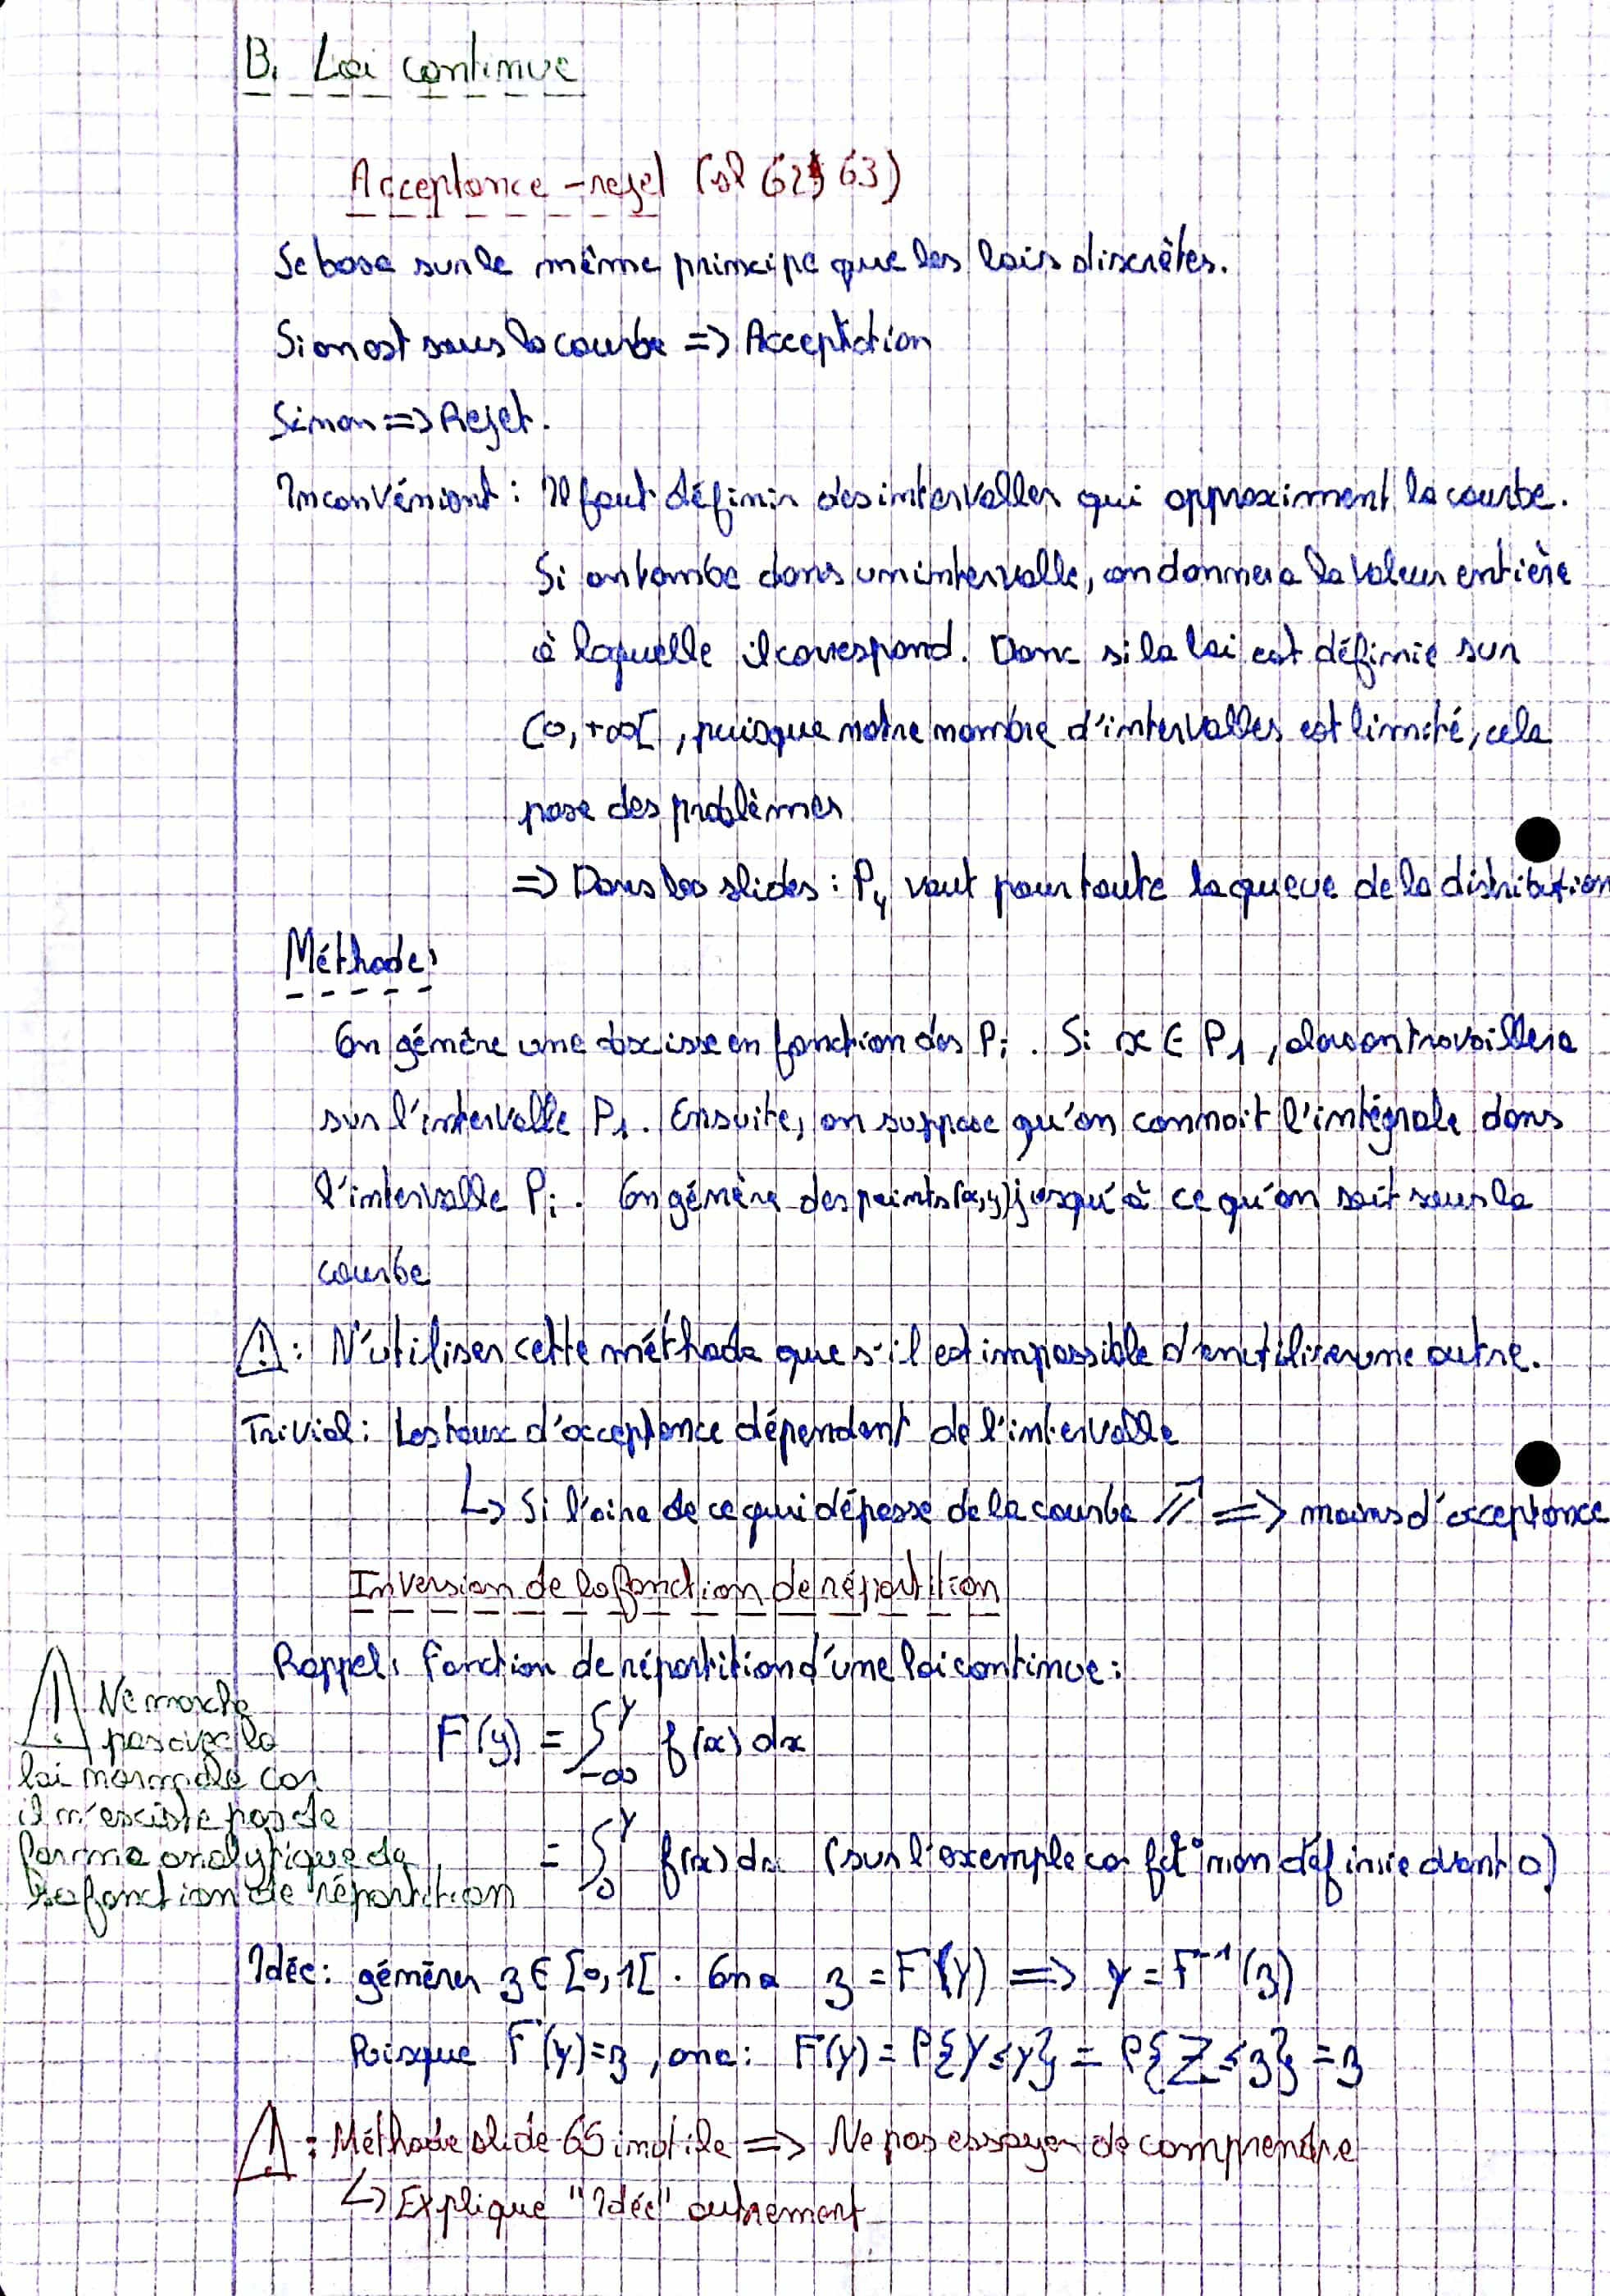 B. Loi continue
Acceptance-rejet (sl 62 63)
Se base sur le même principe que les lois discrètes.
Si on est sous la courbe => Acceptation
Sinon => Rejet.
Inconvénient : Il faut définir des intervalles qui approximent la courbe.
Si on tombe dans un intervalle, on donnera la valeur entière
à laquelle il correspond. Donc si la loi est définie sur
[0, +∞[, puisque notre nombre d'intervalles est limité, cela
pose des problèmes
=> Dans les slides : P4 vaut pour toute la queue de la distribution
Méthode :
On génère une abscisse en fonction des Pi. Si x ∈ P1, alors on travaillera
sur l'intervalle P1. Ensuite, on suppose qu'on connait l'intégrale dans
l'intervalle Pi. On génère des points (x,y) jusqu'à ce qu'on soit sous la
courbe
⚠ : N'utiliser cette méthode que s'il est impossible d'en utiliser une autre.
Trivial : Les taux d'acceptance dépendent de l'intervalle
↳ Si l'aire de ce qui dépasse de la courbe ↗ => moins d'acceptance
Inversion de la fonction de répartition
Rappel : Fonction de répartition d'une loi continue :
⚠ Ne marche
pas avec la
loi normale car
il n'existe pas de
forme analytique de
sa fonction de répartition
F(y) = ∫_{-∞}^{y} f(x) dx
= ∫_{0}^{y} f(x) dx (sur l'exemple car fct° non définie avant 0)
Idée : générer z ∈ [0, 1[. On a z = F(y) => y = F⁻¹(z)
Puisque F(y)=z, on a : F(y) = P{Y≤y} = P{Z≤z} = z
⚠ : Méthode slide 65 inutile => Ne pas essayer de comprendre
↳ Explique "Idée" autrement